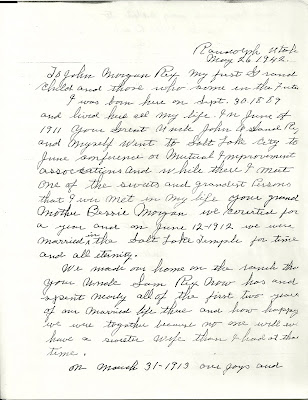 Randolph Utah
May 26 1942.
To John Morgan Rex My first Grand
Child and those who come in the Future
I was born here on Sept. 30. 1889
and lived here all my life In June of
1911 your Great Uncle John O Samel Rex
and Myself went to Salt Lake City to
June conference of Mutual Improvement
assocations and while there I met
one of the sweets and grandest Persons
that I ever met in My life your grand
Mother Bessie Morgan we cortised for
a year and on June 12-1912 we were
married in the Salt Lake Temple for time
and all eternity.
We made our home on the ranch tha
your Uncle Sam Rex Now has and
spent nearly all of the first two years
of our Married life there and how happy
we were together because no one will ever
have a sweeter wife than I had at tha
time.
on March 31-1913 our joys and